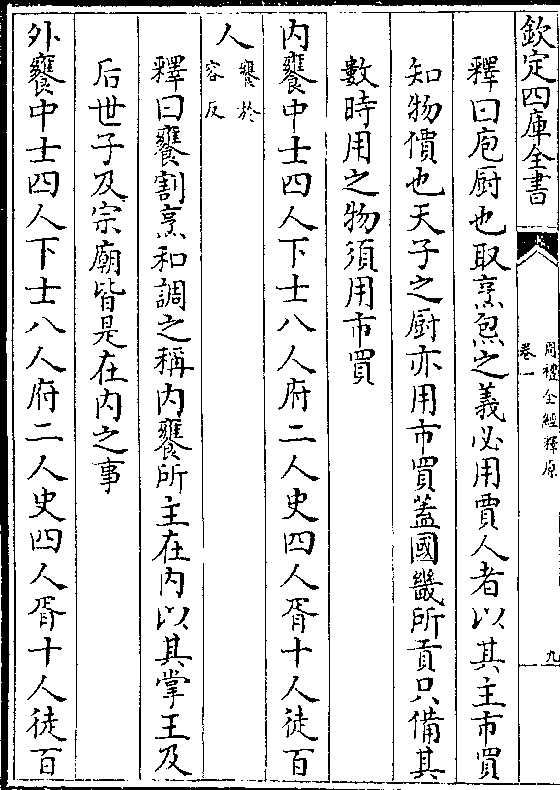 欽定四庫全書
周禮全經釋原
卷一
九
釋曰庖厨也取烹炰之義必用賈人者以其主市買
知物價也天子之厨亦用市買蓋國畿所貢只備其
數時用之物須用市買
内饔中士四人下士八人府二人史四人胥十人徒百
人饔於容反
釋曰饔割烹和調之稱内饔所主在内以其掌王及
后世子及宗廟皆是在内之事
外饔中士四人下士八人府二人史四人胥十人徒百